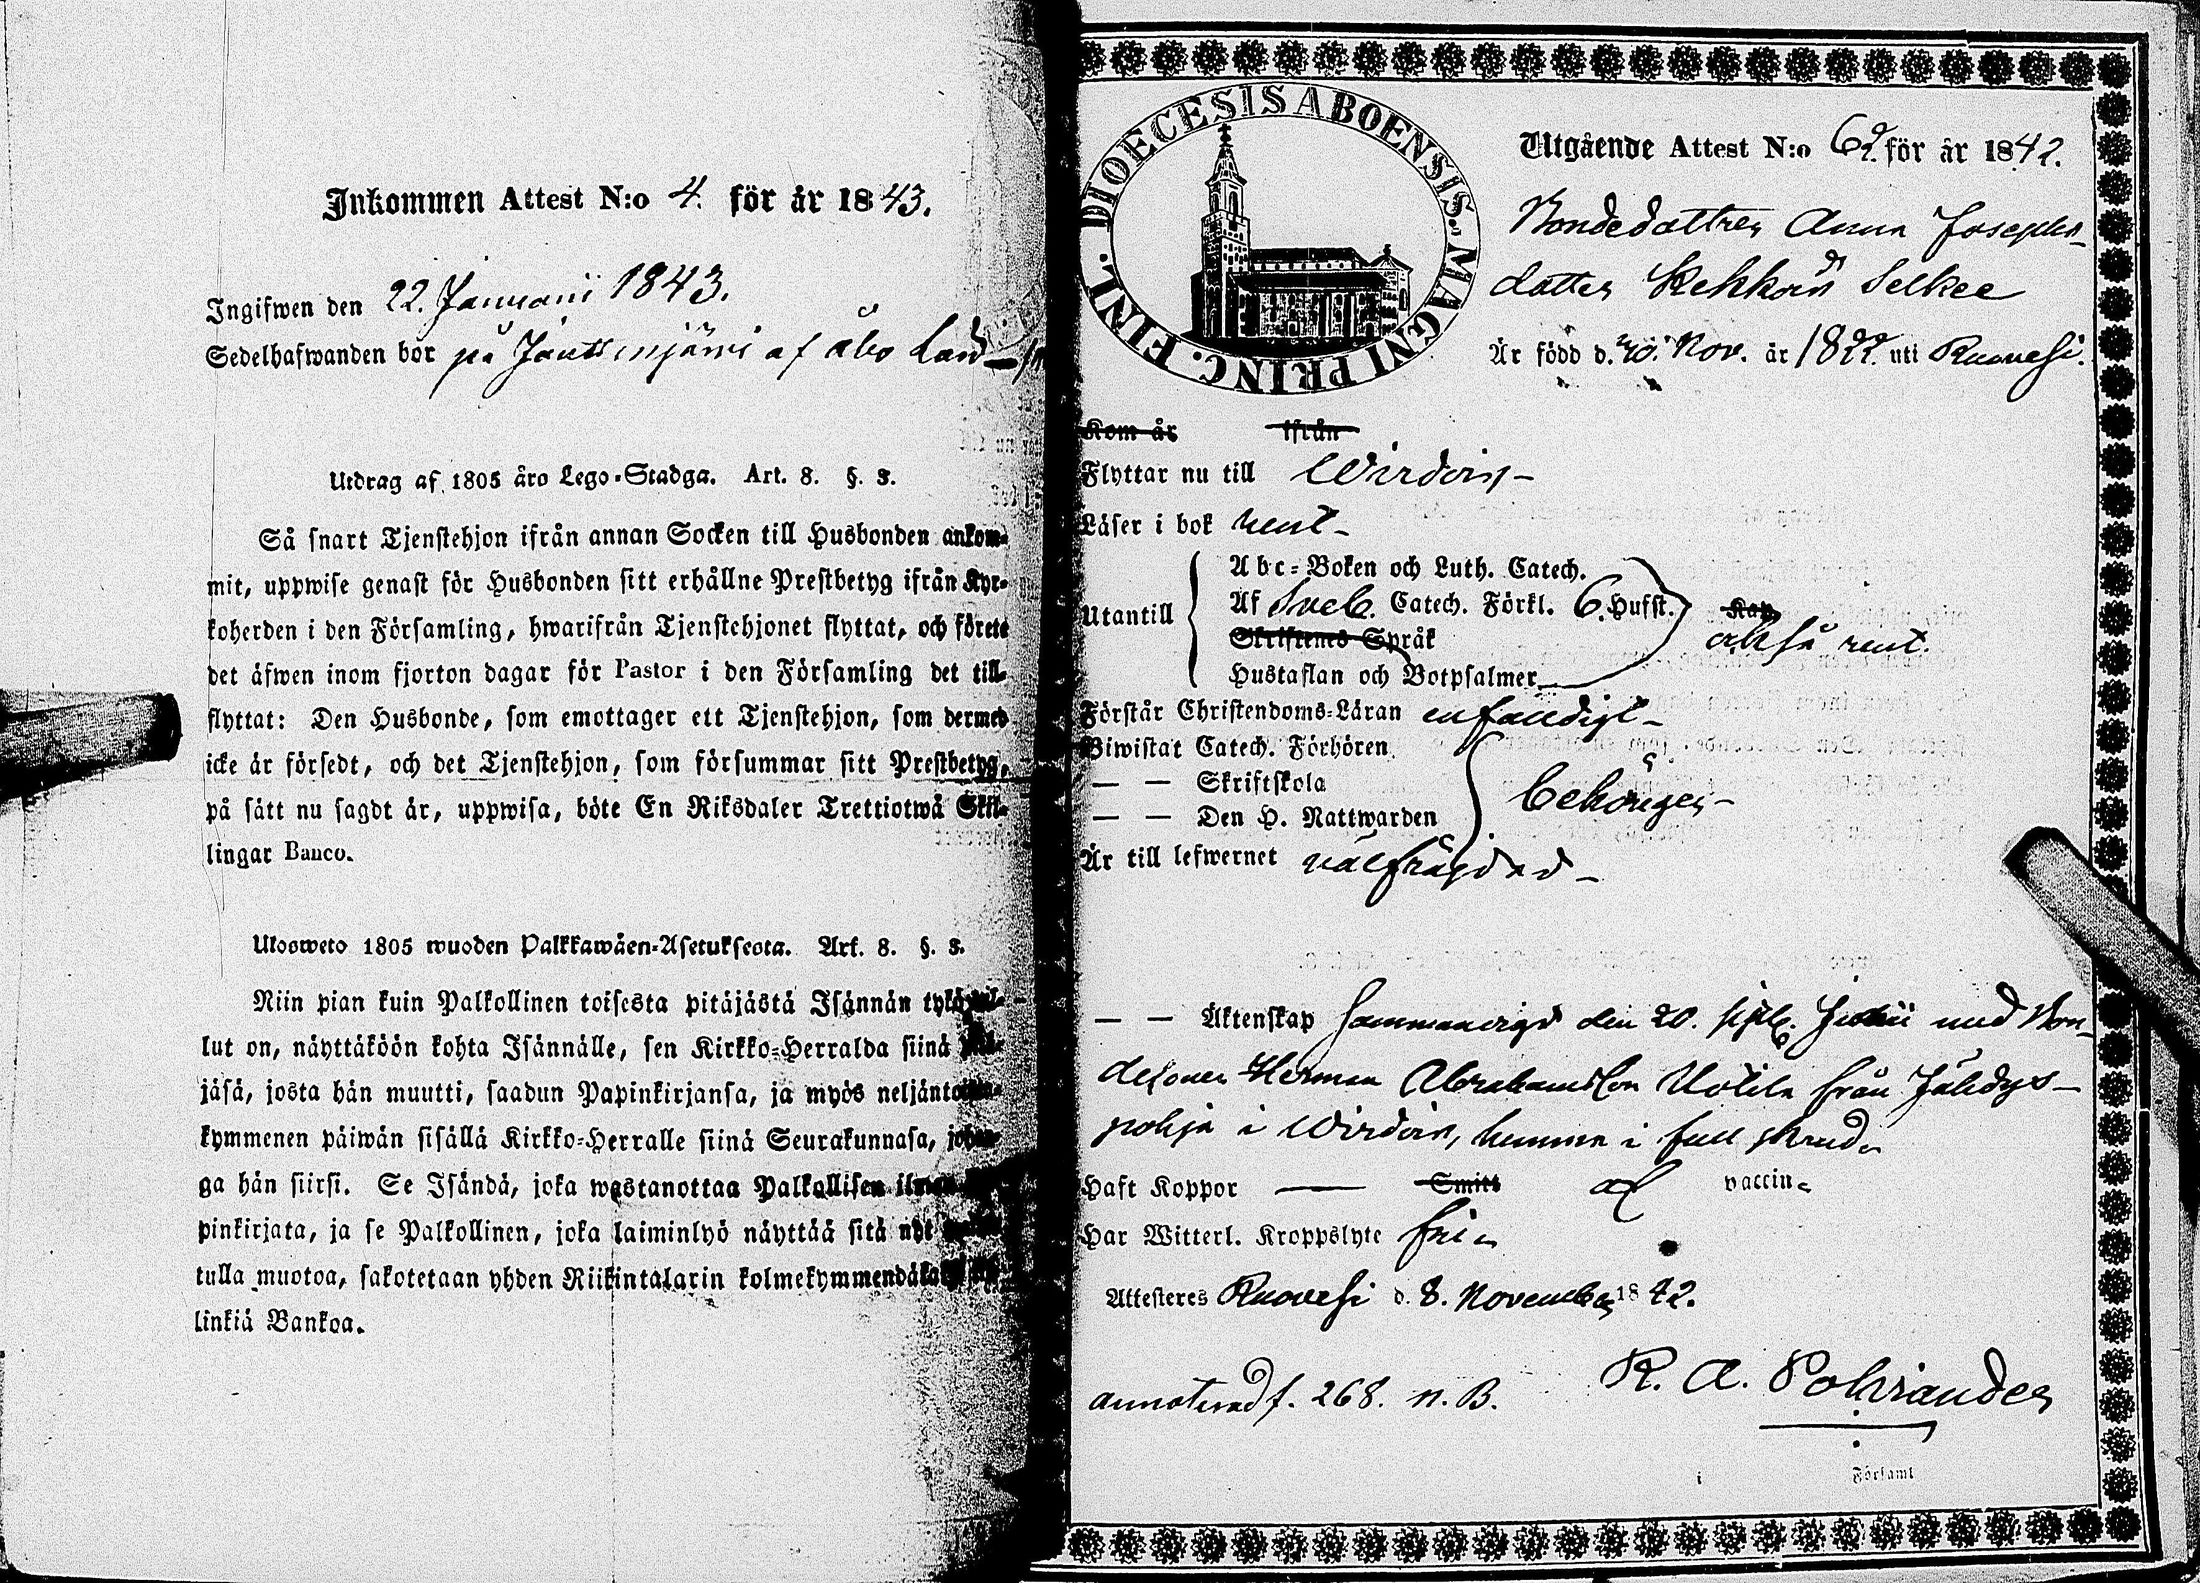 Inkommen Attest N:o 4. för år 1843.
Ingifwen den 22. Januarii 1843.
Sedelhafwanden bor på af Åbo Land
Utdrag af 1805 års Lego-Stadga. Art. 8. §. 3.
Så snart Tjenstehjon ifrån annan Socken till Husbonden ankom-
mit, uppwise genast för Husbonden sitt erhållne Prestbetyg ifrån Kyr-
koherden i den Församling, hwarifrån Tjenstehjonet flyttat, och förete
det äfwen inom fjorton dagar för Pastor i den Församling det till-
flyttat: Den Husbonde, som emottager ett Tjenstehjon, som dermed
icke är försedt, och det Tjenstehjon, som försummar sitt Prestbetyg,
på sätt nu sagdt är, uppwisa, böte En Riksdaler Trettiotwå Skil-
lingar Banco.
Ulosweto 1805 wuoden Palkkawäen-Asetuksesta. Art. 8. §. 3.
Niin pian kuin Palkollinen toisesta pitäjästä Isännän tykö
lut on, näyttäköön kohta Isännälle, sen Kirkko-Herralda siinä
jäsä, josta hän muutti, saadun Papinkirjansa, ja myös neljänto
kymmenen päiwän sisällä Kirkko-Herralle siinä Seurakunnasa,
ga hän siirsi. Se Isändä, joka wastanottaa Palkollisen ilman
pinkirjata, ja se Palkollinen, joka laiminlyö näyttää sitä nyt
tulla muotoa, sakotetaan yhden Riikintalarin kolmekymmendäkaksi
linkiä Bankoa.
DIOECESIS ABOENSIS. MAGNI PRINC. FINL.
Utgående Attest N:o 62. för år 1842.
Bondedottren Anna Josephs-
dotter Selkee
Är född d. 20. Nov. år 1822. uti Ruovesi.
Kom år ifrån
Flyttar nu till Wirdois
Läser i bok rent
Utantill
Abc-Boken och Luth. Catech.
Af Sveb. Catech. Förkl. 6. Hufst.
Skriftenes Språk
Hustaflan och Botpsalmer
Kan
också rent.
Förstår Christendoms-Läran enfaldigt
Biwistat Catech. Förhören
— — Skriftskola
— — Den H. Nattwarden
behörigen
Är till lefwernet välfrägdad
— — Äktenskap sammanvigd den 20. med Bon-
desonen Herman Abrahamsson från Jähdys-
pohja i Wirdois, i full
Haft Koppor — Smitt af vaccin
Har Witterl. Kroppslyte fri
Attesteres Ruovesi d. 8. November 1842.
annoterad f. 268. n. B.
R. A. Polviander
i Församl